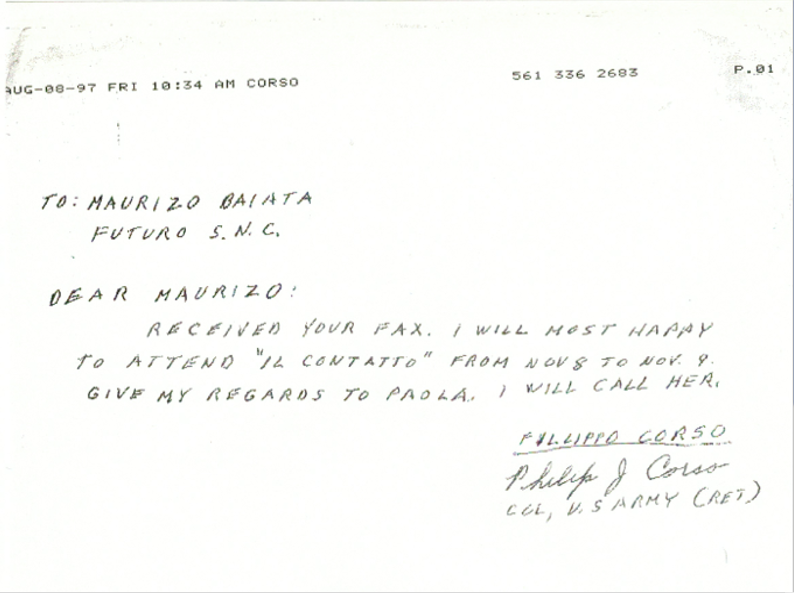 AUG-08-97 FRI 10:34 AM CORSO 561 336 2683 P.01
TO: MAURIZO BAIATA
FUTURO S.N.C.
DEAR MAURIZO:
RECEIVED YOUR FAX. I WILL MOST HAPPY
TO ATTEND "IL CONTATTO" FROM NOV 8 TO NOV. 9.
GIVE MY REGARDS TO PAOLA. I WILL CALL HER.
FILLIPPO CORSO
Philip J Corso
COL, U.S ARMY (RET.)